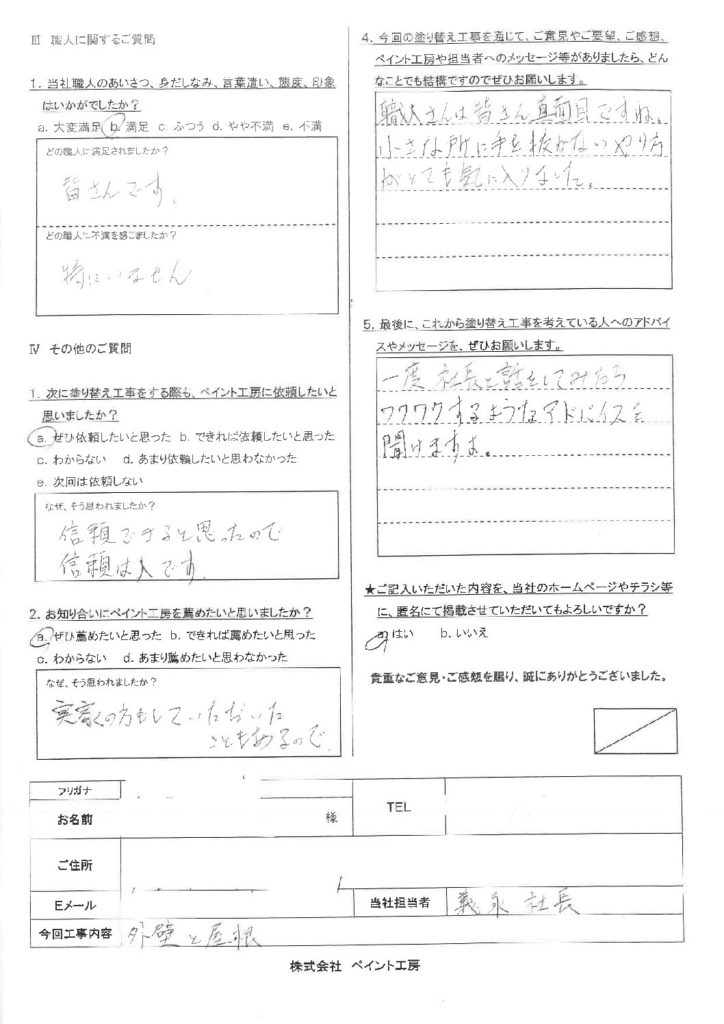 Ⅲ 職人に関するご質問
1. 当社職人のあいさつ、身だしなみ、言葉遣い、態度、印象
はいかがでしたか?
a. 大変満足 b. 満足 c. ふつう d. やや不満 e. 不満
どの職人に満足されましたか?
皆さんです。
どの職人に不満を感じましたか?
特にいません
Ⅳ その他のご質問
1. 次に塗り替え工事をする際も、ペイント工房に依頼したいと
思いましたか?
a. ぜひ依頼したいと思った b. できれば依頼したいと思った
c. わからない d. あまり依頼したいと思わなかった
e. 次回は依頼しない
なぜ、そう思われましたか?
信頼できると思ったので
信頼は人です。
2. お知り合いにペイント工房を薦めたいと思いましたか?
a. ぜひ薦めたいと思った b. できれば薦めたいと思った
c. わからない d. あまり薦めたいと思わなかった
なぜ、そう思われましたか?
実家の方もしていただいた
こともあるので
4. 今回の塗り替え工事を通じて、ご意見やご要望、ご感想、
ペイント工房や担当者へのメッセージ等がありましたら、どん
なことでも結構ですのでぜひお願いします。
職人さんは皆さん真面目ですね。
小さな所に手を抜かないやり方
がとても気に入りました。
5. 最後に、これから塗り替え工事を考えている人へのアドバイ
スやメッセージを、ぜひお願いします。
一度 社長と話をしてみたら
ワクワクするようなアドバイスを
聞けますよ。
★ご記入いただいた内容を、当社のホームページやチラシ等
に、匿名にて掲載させていただいてもよろしいですか?
a. はい b. いいえ
貴重なご意見・ご感想を賜り、誠にありがとうございました。
フリガナ
お名前 様 TEL
ご住所
Eメール 当社担当者 義永 社長
今回工事内容 外壁と屋根
株式会社 ペイント工房